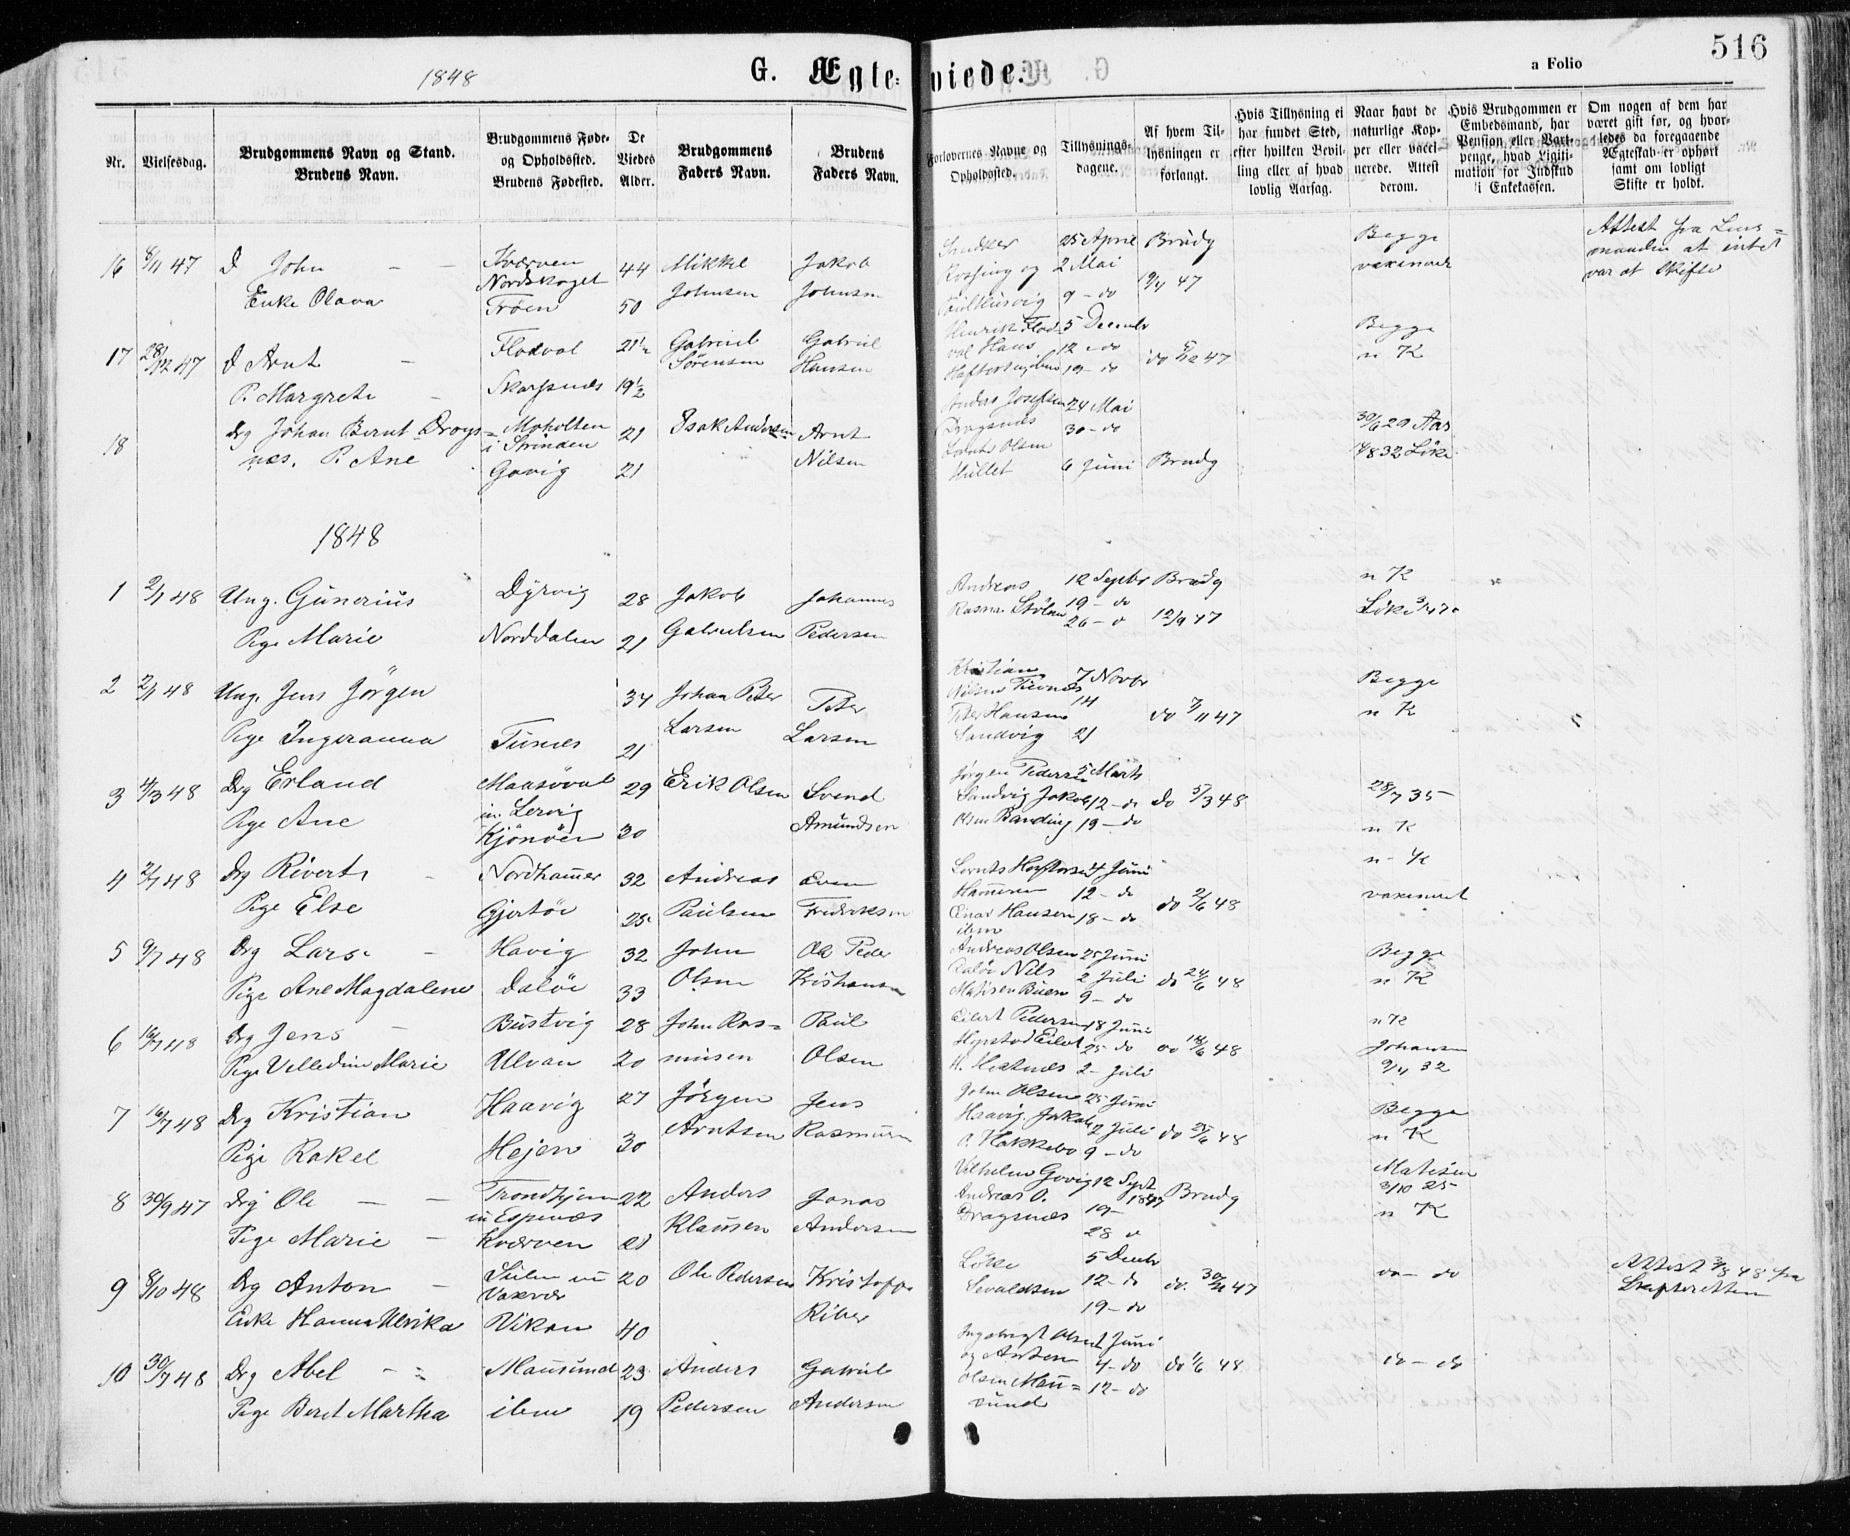 1848
G. Ægte-
viede.
a Folio
516
Nr.
Vielsesdag.
Brudgommens Navn og Stand.
Brudens Navn.
Brudgommens Føde-
og Opholdssted.
Brudens Fødested.
De
Viedes
Alder.
Brudgommens
Faders Navn.
Brudens
Faders Navn.
Forlovernes Navne og
Opholdssted.
Tillysnings-
dagene.
Af hvem Til-
lysningen er
forlangt.
Hvis Tillysning ei
har fundet Sted,
efter hvilken Bevil-
ling eller af hvad
lovlig Aarsag.
Naar havt de
naturlige Kop-
per eller vacci-
nerede. Attest
derom.
Hvis Brudgommen er
Embedsmand, har
Pension eller Vart-
penge, hvad Ligiti-
mation for Indskud
i Enkekassen.
Om nogen af dem har
været gift før, og hvor-
ledes da foregaaende
Ægteskab er ophørt
samt om lovligt
Skifte er holdt.
16 8/11 47 D John
Enke Olava
Kværven
Nordskaget
Trøen
44
50
Mikkel
Johnsen
Jakob
Johnsen
25 April
2 Mai
9 - do
Brudg
Begge
Attest fra Lens=
manden at intet
var at skifte
17 28/12 47 D Arnt
P. Margrete
Flatval
Skarpnes
21½
19½
Gabriel
Sørensen
Gabriel
Hansen
5 Decembr
12 - do
19 - do
do 5/12 47
Begge
n K
18
Drg Johan Bernt Drogs=
nes. P. Ane
Moholten
i Strinden
Gavig
21
21
Isak Andersen
Arnt
Nilsen
Anders Josefsen
Dragsnes
Lornts Olsen
Hullet
24 Mai
30 - do
6 Juni
Brudg
1848
1 2/1 48 Ung. Gunerius
Pige Marie
Dyrvig
Norddalen
28
21
Jakob
Gabrielsen
Johannes
Pedersen
Andreas
12 Septbr
19 - do
26 - d
Brudg
12/9 47
n K
2 2/1 48 Ung. Jens Jørgen
Pige Ingeranna
Tusnes
34
21
Johan Peter
Larsen
Peter
Larsen
Kristian
Peter Hansen
Sandvig
7 Novbr
14
21
do 7/11 47
Begge
n K
3 4/3 48 Drg Erland
Pige Ane
Maasøval
in Lervig
Kjønøen
29
30
Erik Olsen
Svend
Amundsen
Jørgen Pedersen
Sandvig Jakob
Olsen
5 Marts
12 - do
19 - do
do 5/3 48
28/7 35
n K
4 2/7 48 Drg Rivert
Pige Else
Nordhammer
Gjertøe
32
25
Andreas
Paulsen
Even
Fredriksen
Hammer
Hansen
ibm
4 Juni
12 - do
18 - do
do 2/6 48
n - K
vaxineret
5 9/7 48 Drg Lars
Pige Ane Magdalene
Havig
Daløe
32
33
John
Olsen
Ole Peder
Kristiansen
Andreas Olsen
Daløe Nils
25 Juni
2 Juli
9 - do
do 24/6 48
Begge
n K
6 16/7 48 Drg Jens
Pige Velledine Marie
Bustvig
Ulvan
28
20
John Ras=
musen
Paul
Olsen
Eilert Pedersen
18 Juni
25 do
2 - Juli
do 18/6 48
n K
Johansen
9/11 32
7 16/7 48 Drg Kristian
Pige Rakel
Haavig
Hejen
27
30
Jørgen
Arntsen
Jens
Rasmusen
John Olsen
Haavig. Jakob
25 Juni
2 Juli
9 - do
do 25/6 48
Begge
n K
8 30/9 47 Drg Ole
Pige Marie
Trondhjem
in Espenæs
Kværven
22
21
Anders
Klausen
Jonas
Andersen
Vilhelm Gavig
Andreas O.
Dragsnæs
12 Sept
1847
19 -
28 d
Brudg
Matisen
3/10 25
n K
9 8/10 48 Drg Anton
Enke Hanna Ulrika
Vikan
20
40
Ole Pedersen
Kristoffer
Riber
5 Decbr
12 - do
19 - do
do
do - do
Attest 3/8 48 fra
Skifteretten
10 30/7 48 Drg Abel
Pige Beret Martha
Mausund
ibm
23
19
Anders
Pedersen
Gabriel
Andersen
Ingebrigt Olsen
og Anton
Olsen Mau=
sund
1 Juni
4 - do
12 - do
do 1/6 48
do - do